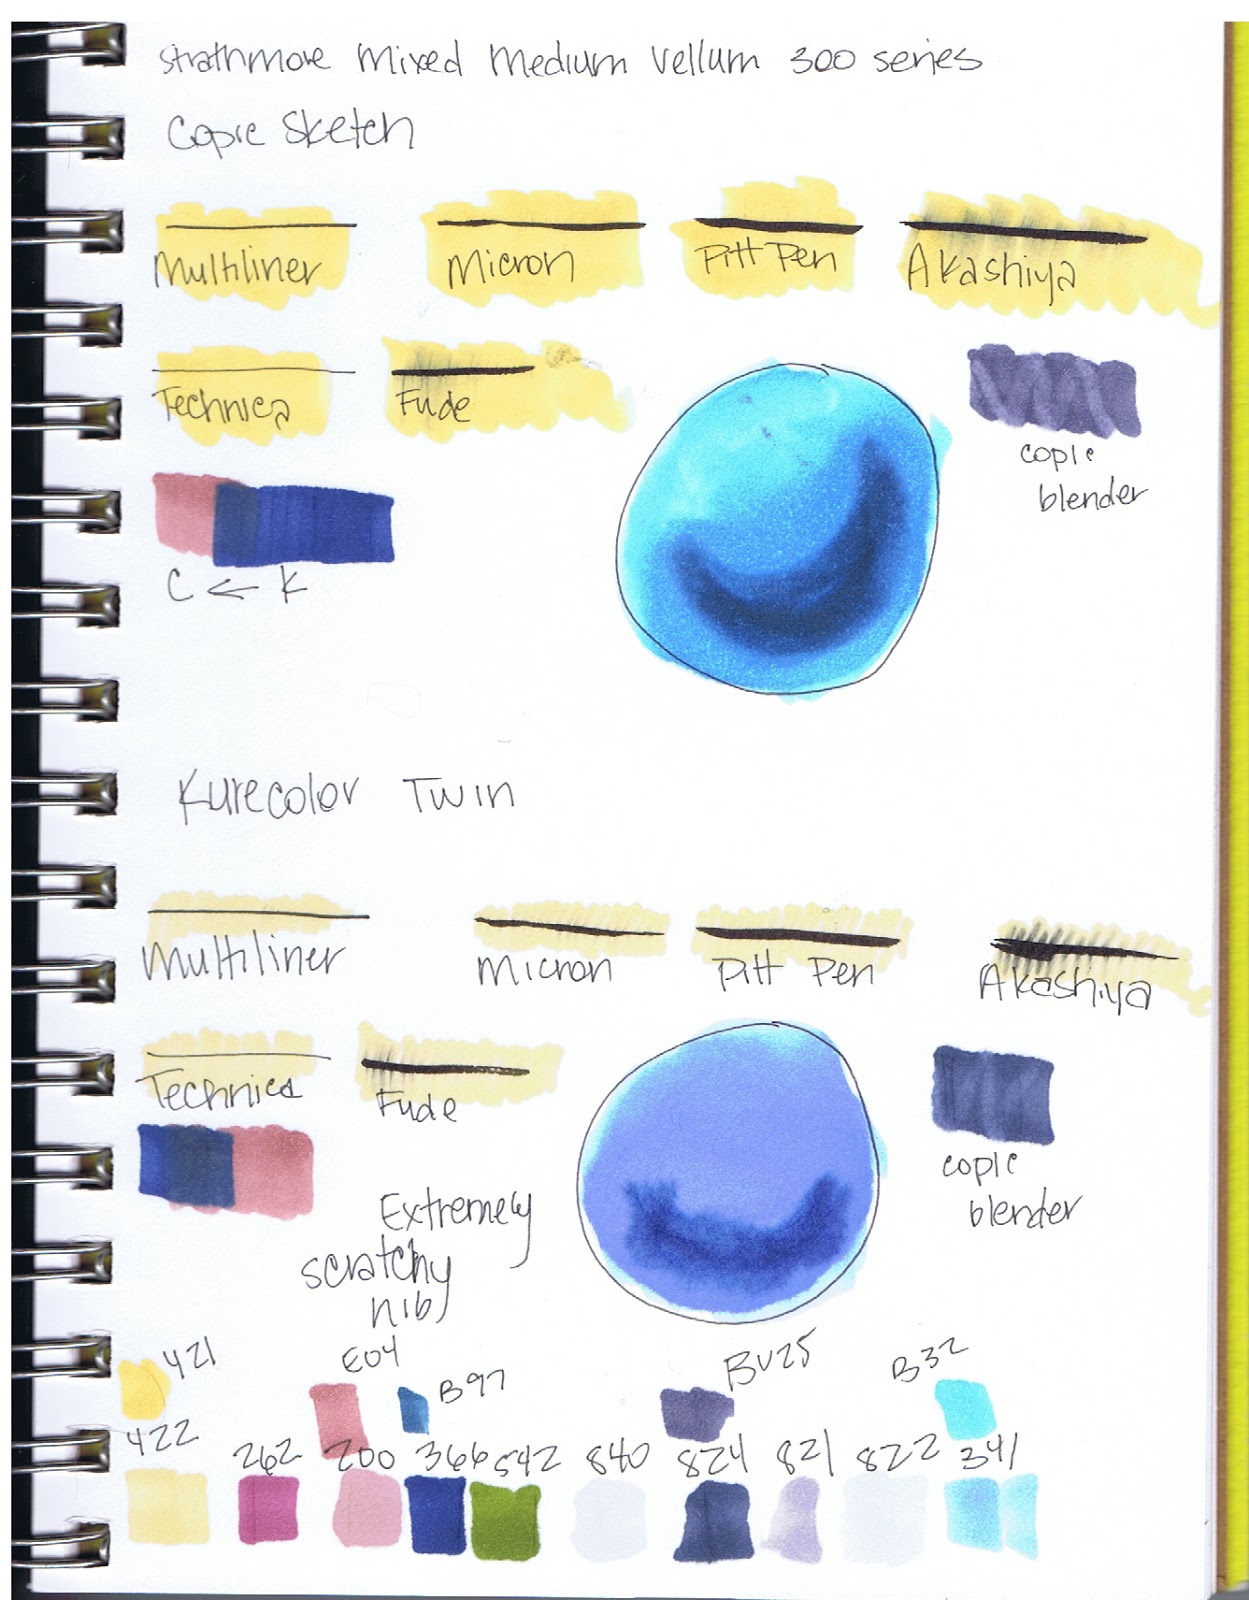 Strathmore Mixed Medium Vellum 300 series
Copic Sketch
Multiliner Micron Pitt Pen Akashiya
Technica Fude
copic
blender
C ← K
Kurecolor Twin
Multiliner Micron Pitt Pen Akashiya
Technica Fude
copic
blender
Extremely
scratchy
nib
421 E04 B97 BV25 B32
422 262 200 366 542 840 824 821 822 341